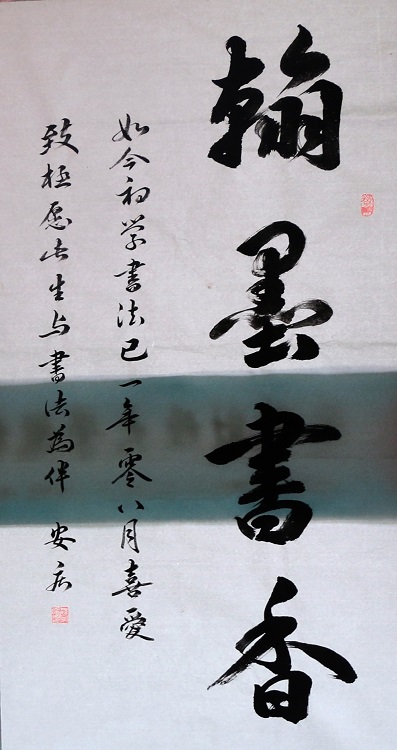 翰墨書香
如今初学書法已一年零八月喜愛
致極愿此生与書法為伴 安